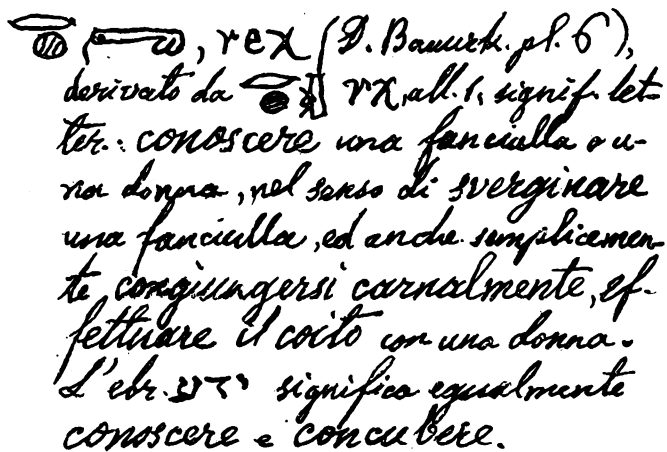 𓂋𓐍 𓂺, rex (D. Bauurk. pl. 6),
derivato da 𓂋𓐍𓏛 rχ, all. 1, signif. let-
ter. conoscere una fanciulla o u-
na donna, nel senso di sverginare
una fanciulla, ed anche semplicemen-
te congiungersi carnalmente, ef-
fettuare il coito con una donna.
L'ebr. ידע significa egualmente
conoscere e concubere.